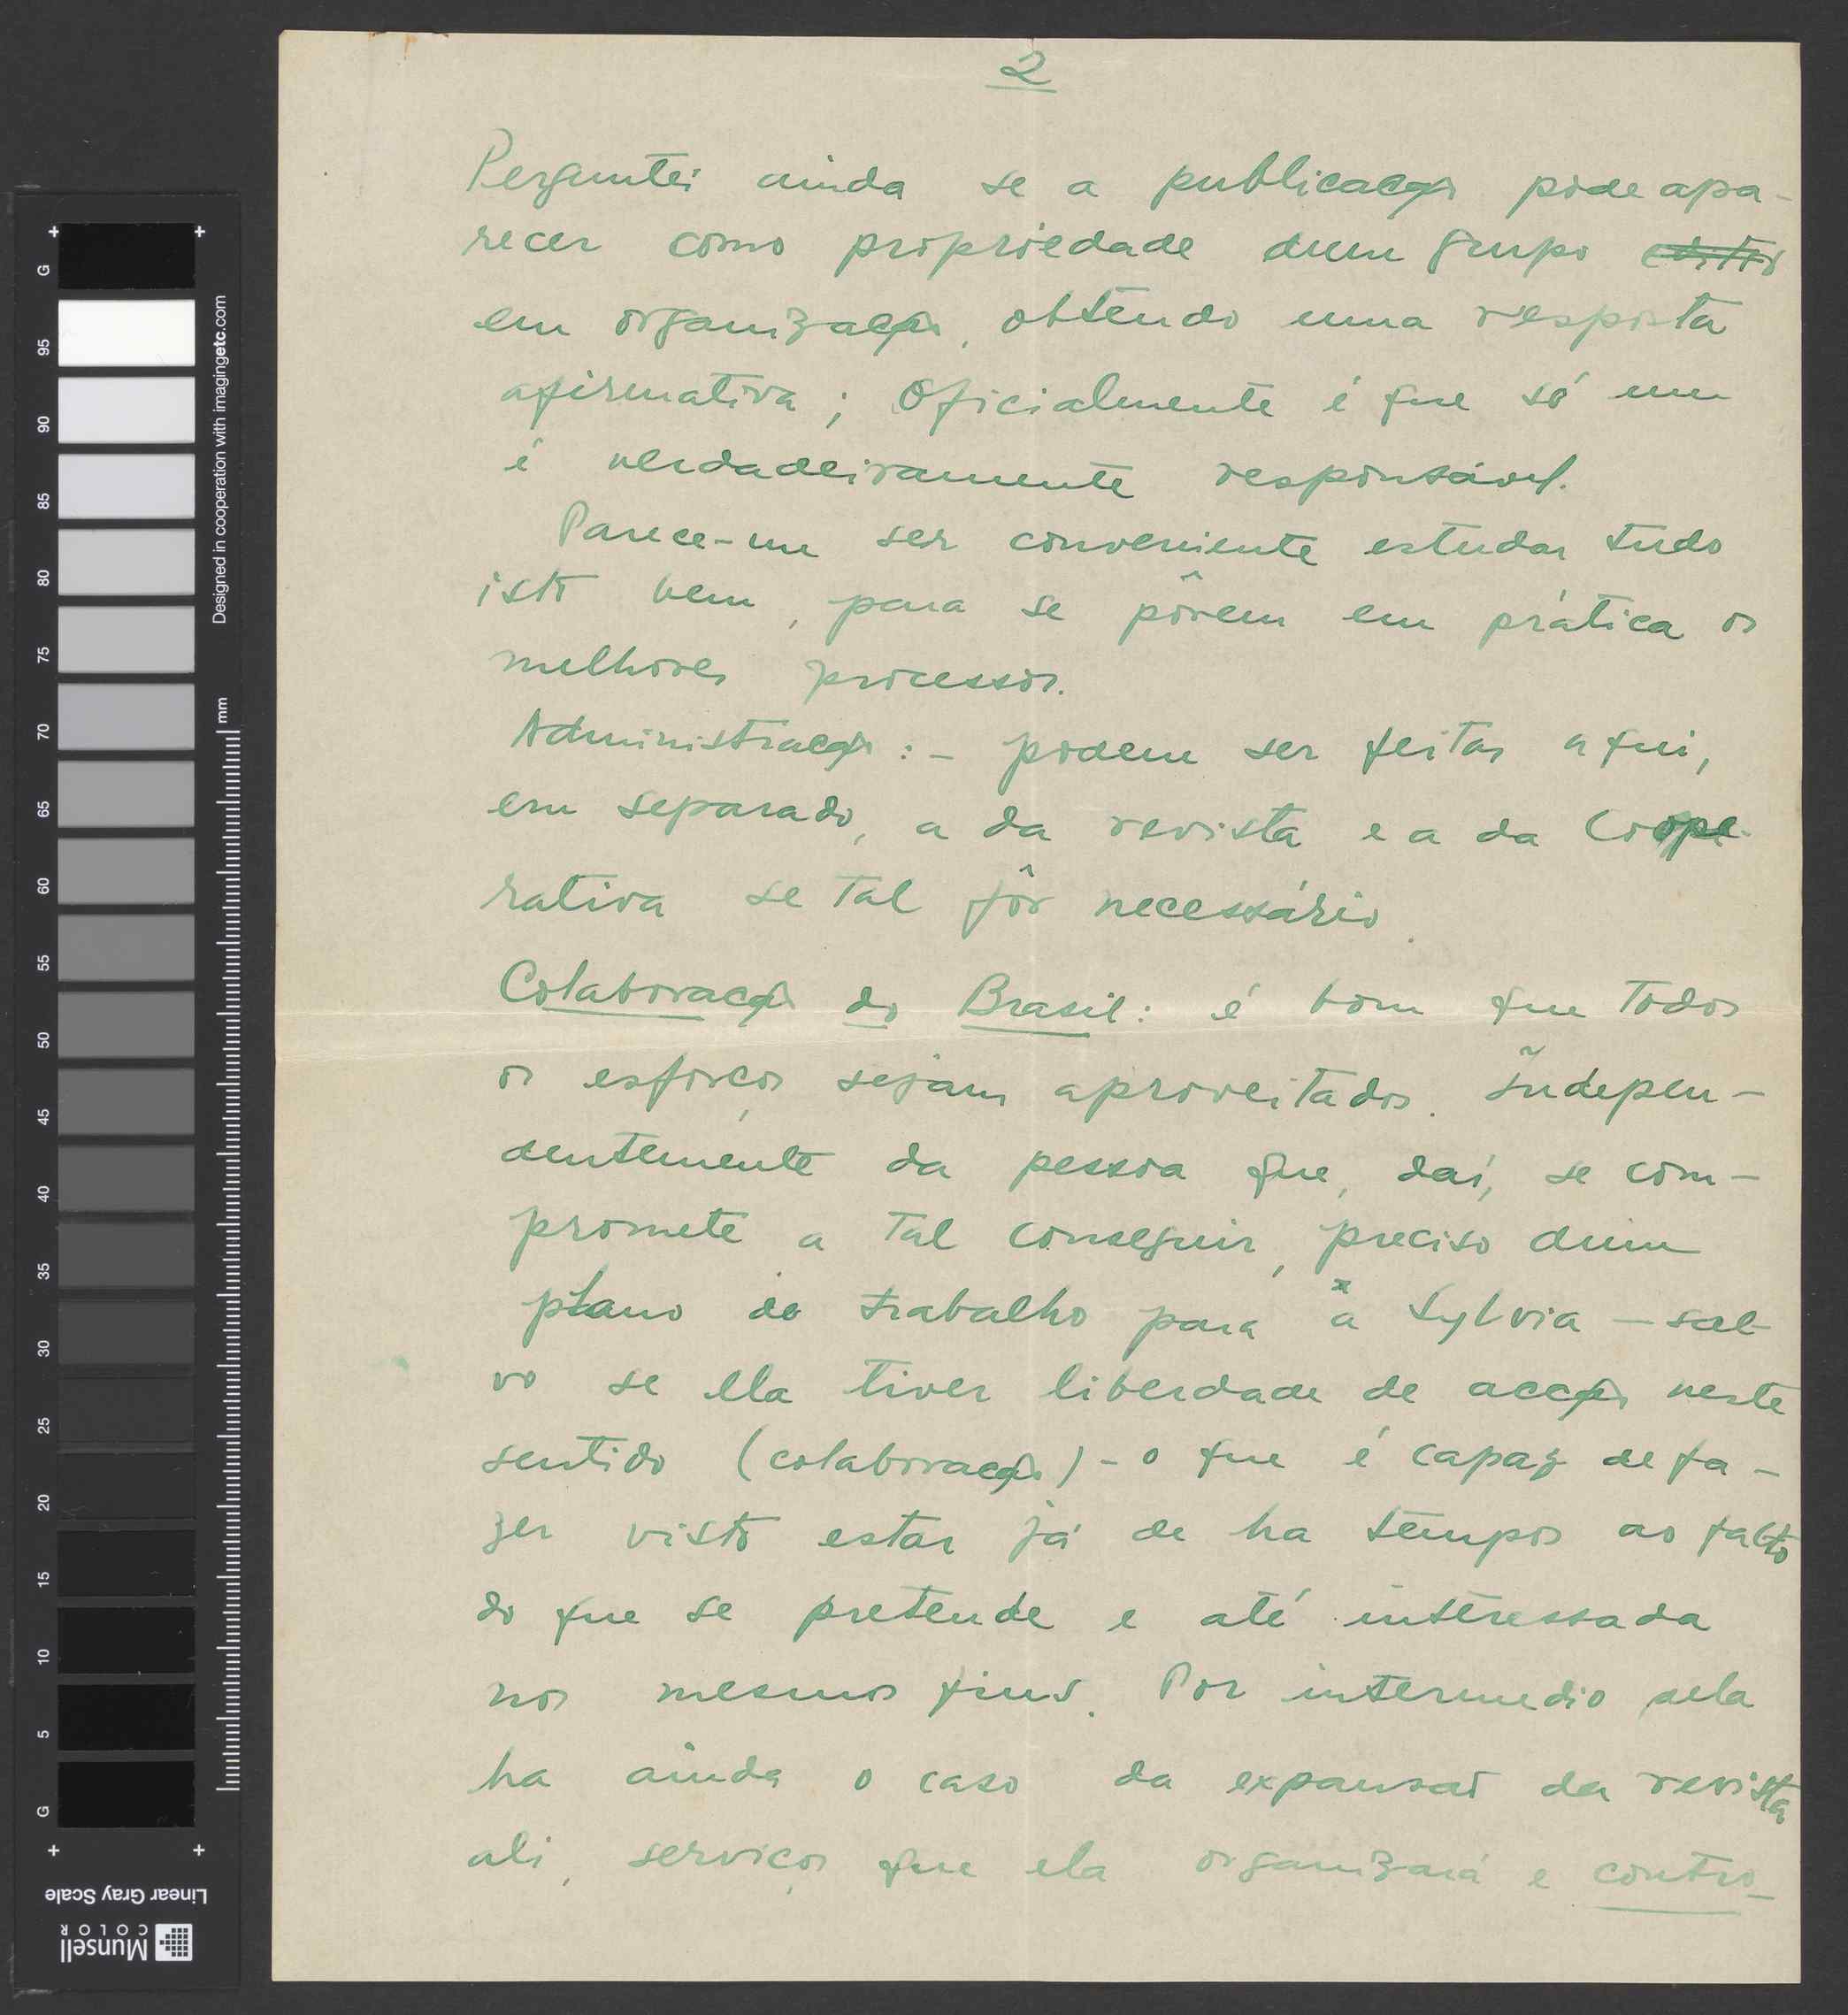 2
Perguntei ainda se a publicação pode apa-
recer como propriedade dum grupo
em organização, obtendo uma resposta
afirmativa; Oficialmente é que só um
é verdadeiramente responsável.
Parece-me ser conveniente estudar tudo
isto bem, para se pôrem em prática os
melhores processos.
Administração: - podem ser feitas aqui,
em separado, a da revista e a da Coope-
rativa se tal fôr necessário.
Colaboração do Brasil: é bom que todos
os esforços sejam aproveitados. Indepen-
dentemente da pessoa que, daí, se com-
promete a tal conseguir, preciso dum
plano de trabalho para a Sylvia - sal-
vo se ela tiver liberdade de acção neste
sentido (colaboração) - o que é capaz de fa-
zer visto estar já de ha tempos ao facto
do que se pretende e até interessada
nos mesmos fins. Por intermedio dela
ha ainda o caso da expansão da revista
ali, serviços que ela organizará e contro-
G 95 90 85 80 75 70 65 60 55 50 45 40 35 30 25 20 15 10 5 G
mm
Designed in cooperation with imagingetc.com
Linear Gray Scale
Munsell
COLOR